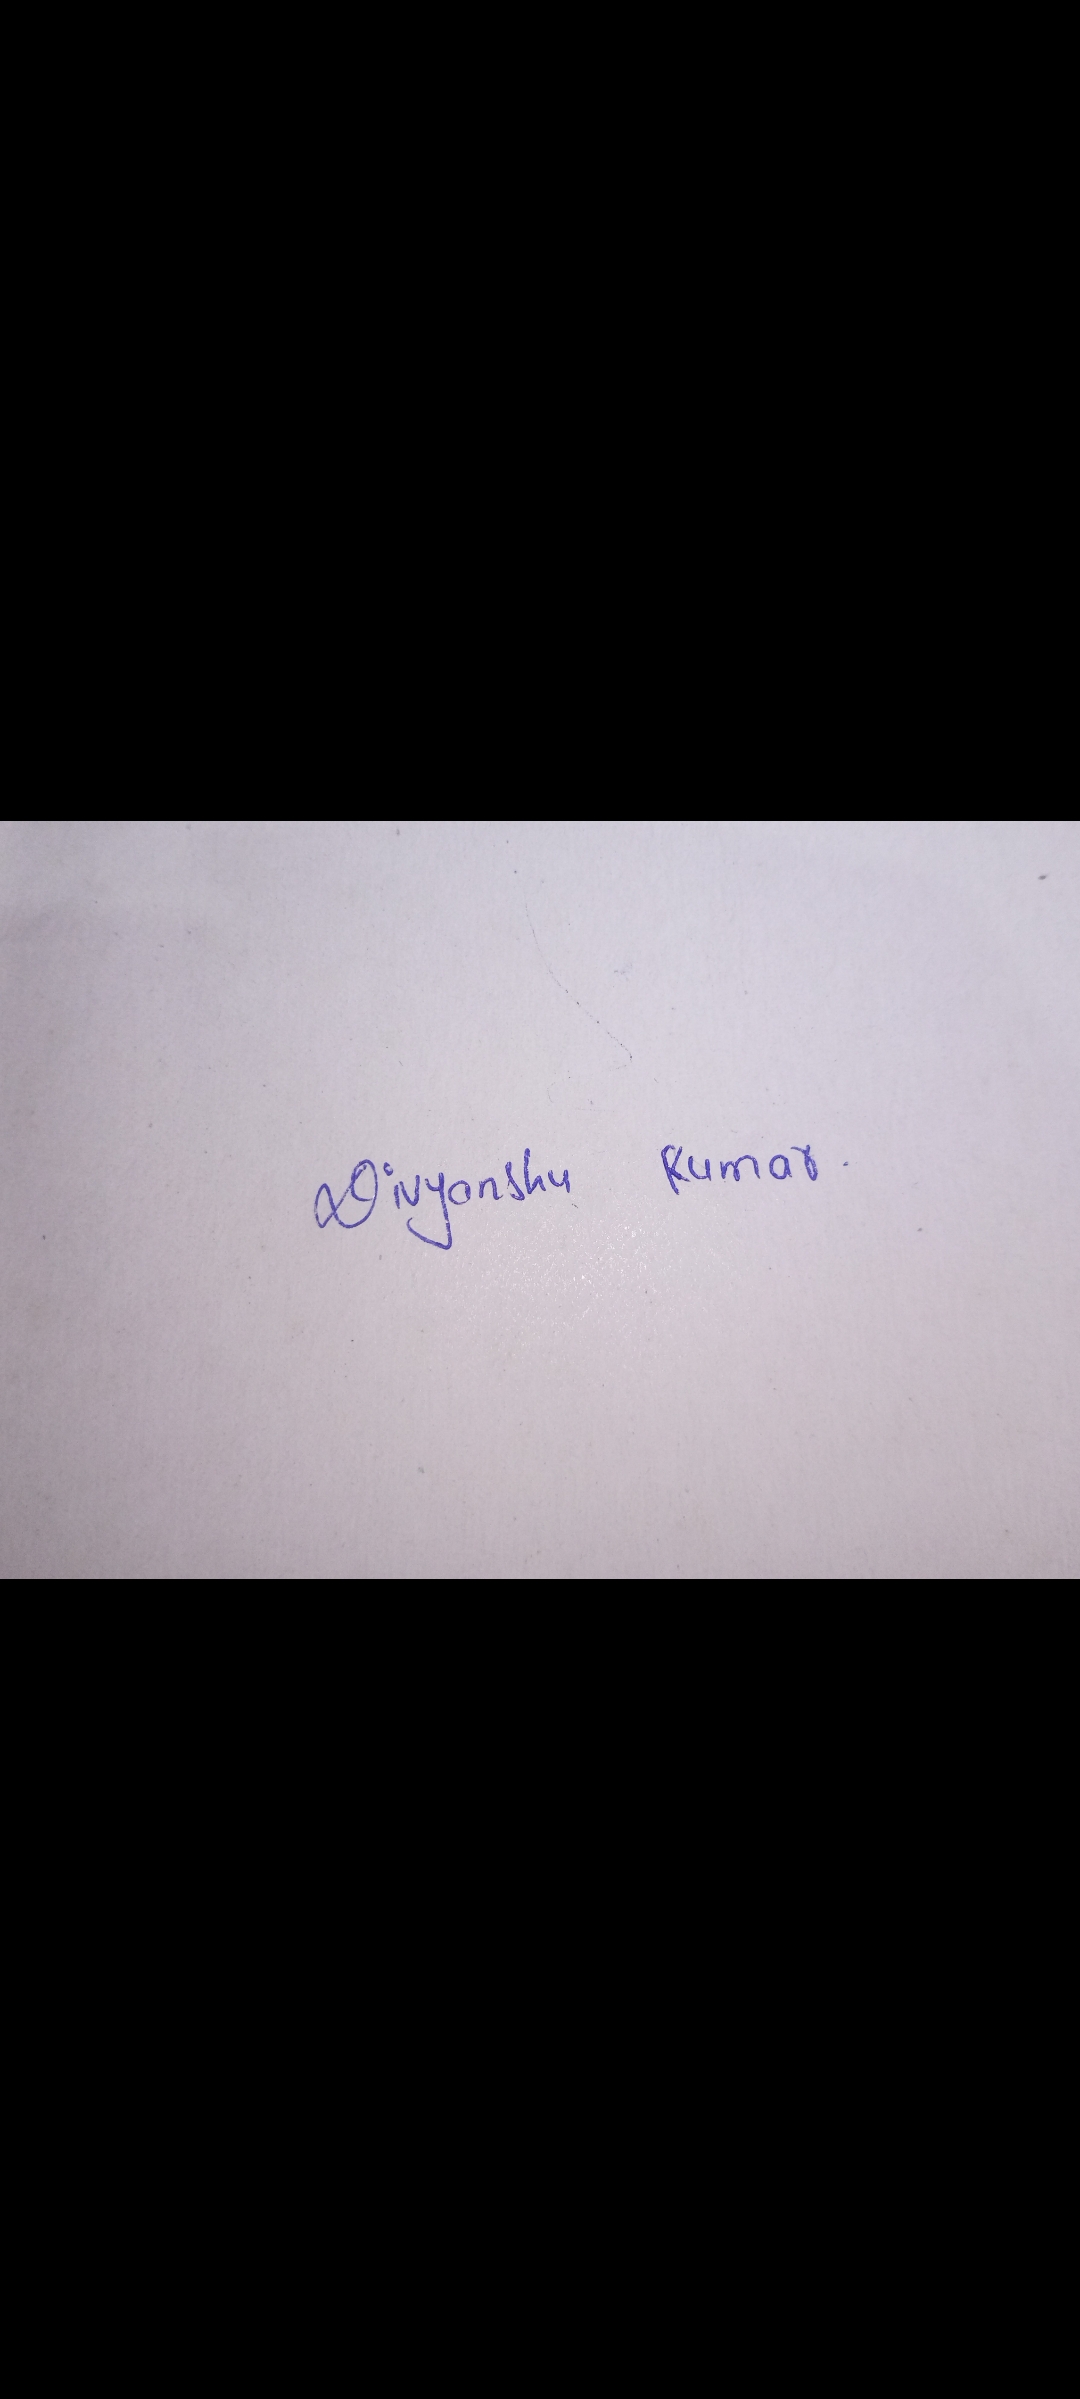 Divyanshu Kumar.